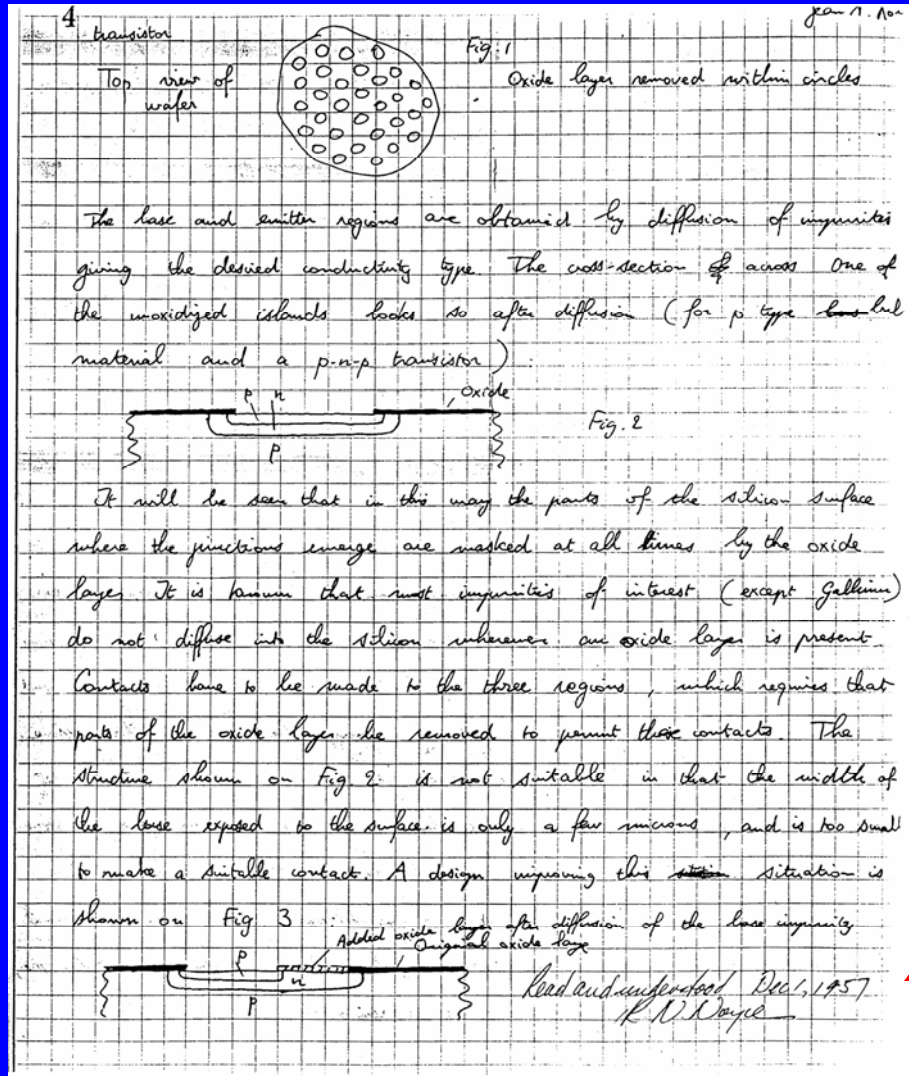 4
transistor
Top view of
wafer
Fig. 1
Oxide layer removed within circles
The base and emitter regions are obtained by diffusion of impurities
giving the desired conductivity type. The cross-section across one of
the unoxidized islands looks so after diffusion (for p type
material and a p-n-p transistor)
p n
oxide
p
Fig. 2
It will be seen that in this way the parts of the silicon surface
where the junctions emerge are masked at all times by the oxide
layer It is known that most impurities of interest (except Gallium)
do not diffuse into the silicon wherever an oxide layer is present
Contacts have to be made to the three regions, which requires that
parts of the oxide layer be removed to permit these contacts. The
structure shown on Fig 2 is not suitable in that the width of
the base exposed to the surface is only a few microns, and is too small
to make a suitable contact. A design improving this situation is
shown on Fig 3
Added oxide layer after diffusion of the base impurity
Original oxide layer
p
n
p
Read and understood Dec 1, 1957
R N Noyce